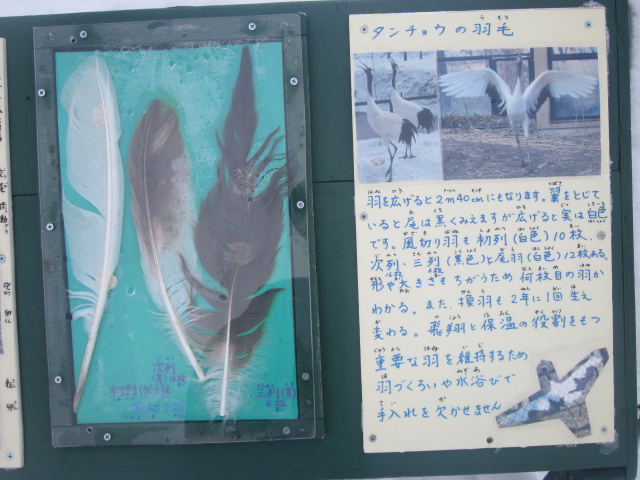 タンチョウの羽毛
羽を広げると2m40cmにもなります。翼をとじて
いると尾は黒くみえますが広げると実は白色
です。風切り羽も初列(白色)10枚、
次列・三列(黒色)と尾羽(白色)12枚ある。
形や大きさもちがうため何枚目の羽か
わかる。また、換羽も2年に1回生え
変わる。飛翔と保温の役割をもつ
重要な羽を維持するため
羽づくろいや水浴びで
手入れを欠かせません
次列
(黒)16枚
三列(黒)